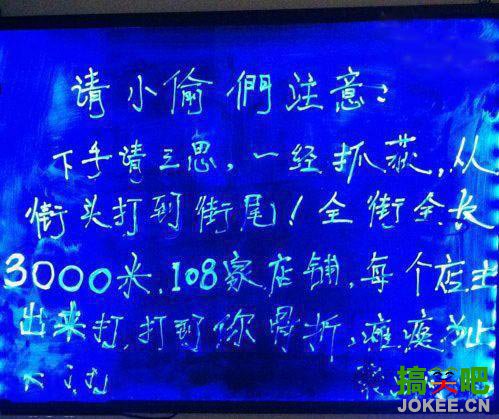 请小偷們注意:
下手请三思,一经抓荻,从
街头打到街尾!全街全长
3000米,108家店铺,每个店主
出来打,打到你骨折,瘫痪为止
搞笑吧
JOKEE.CN